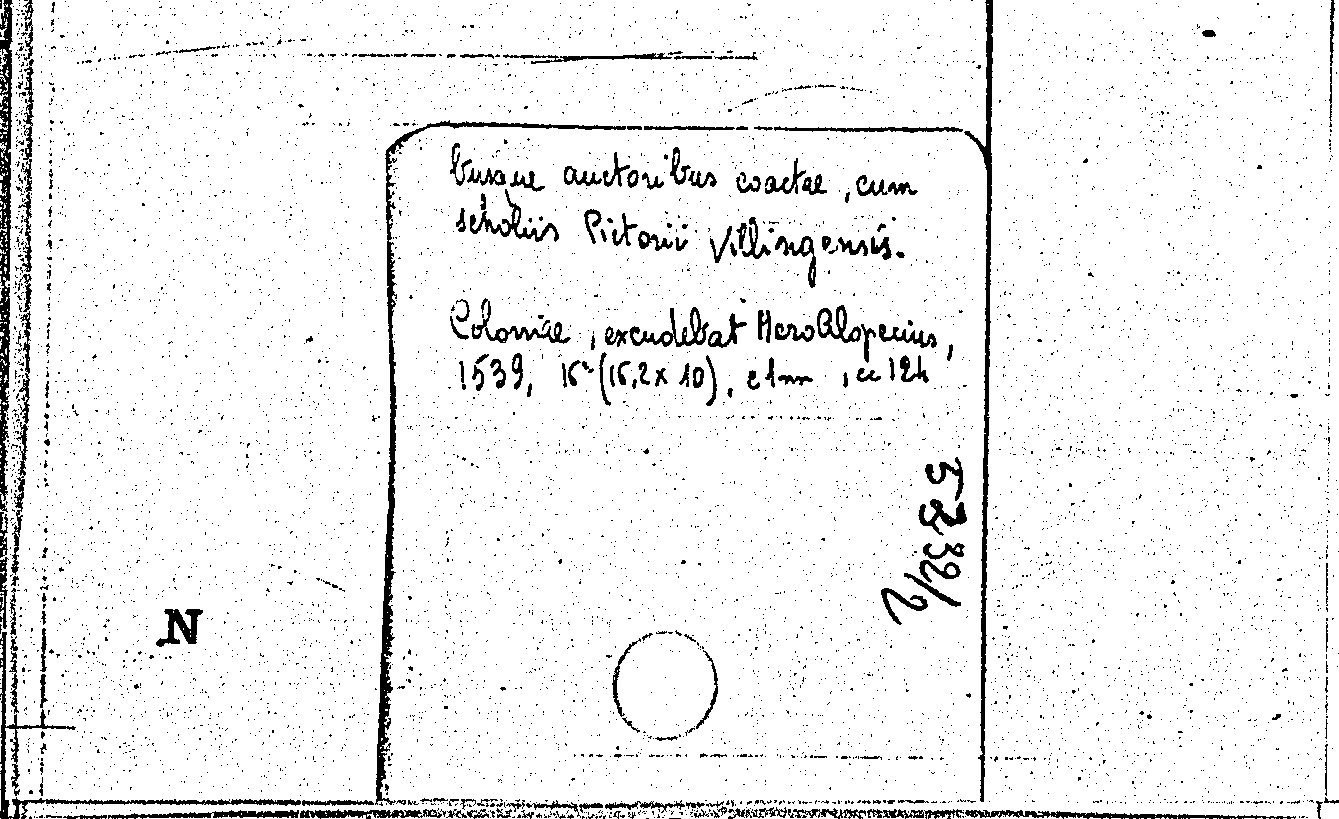 busque auctoribus coactae, cum
scholiis Pictorii Villingensis.
Coloniae, excudebat Hero Alopecius,
1539, 16° (16,2 x 10),
5832/2
N